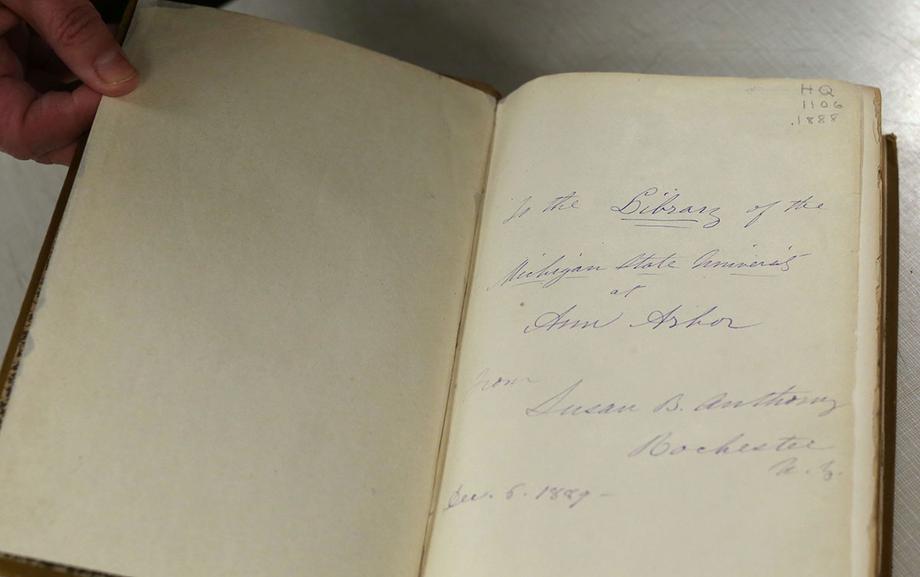 HQ
1106
.1888
To the Library of the
Michigan State University
at
Ann Arbor
from
Susan B. Anthony
Rochester
N. Y.
Dec. 5. 1889 -